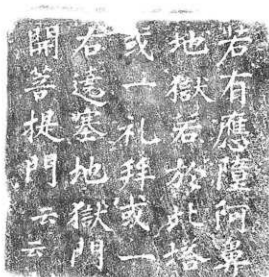 若有應墮阿鼻
地獄若於此塔
或一礼拜或一
右遶塞地獄門
開菩提門云云